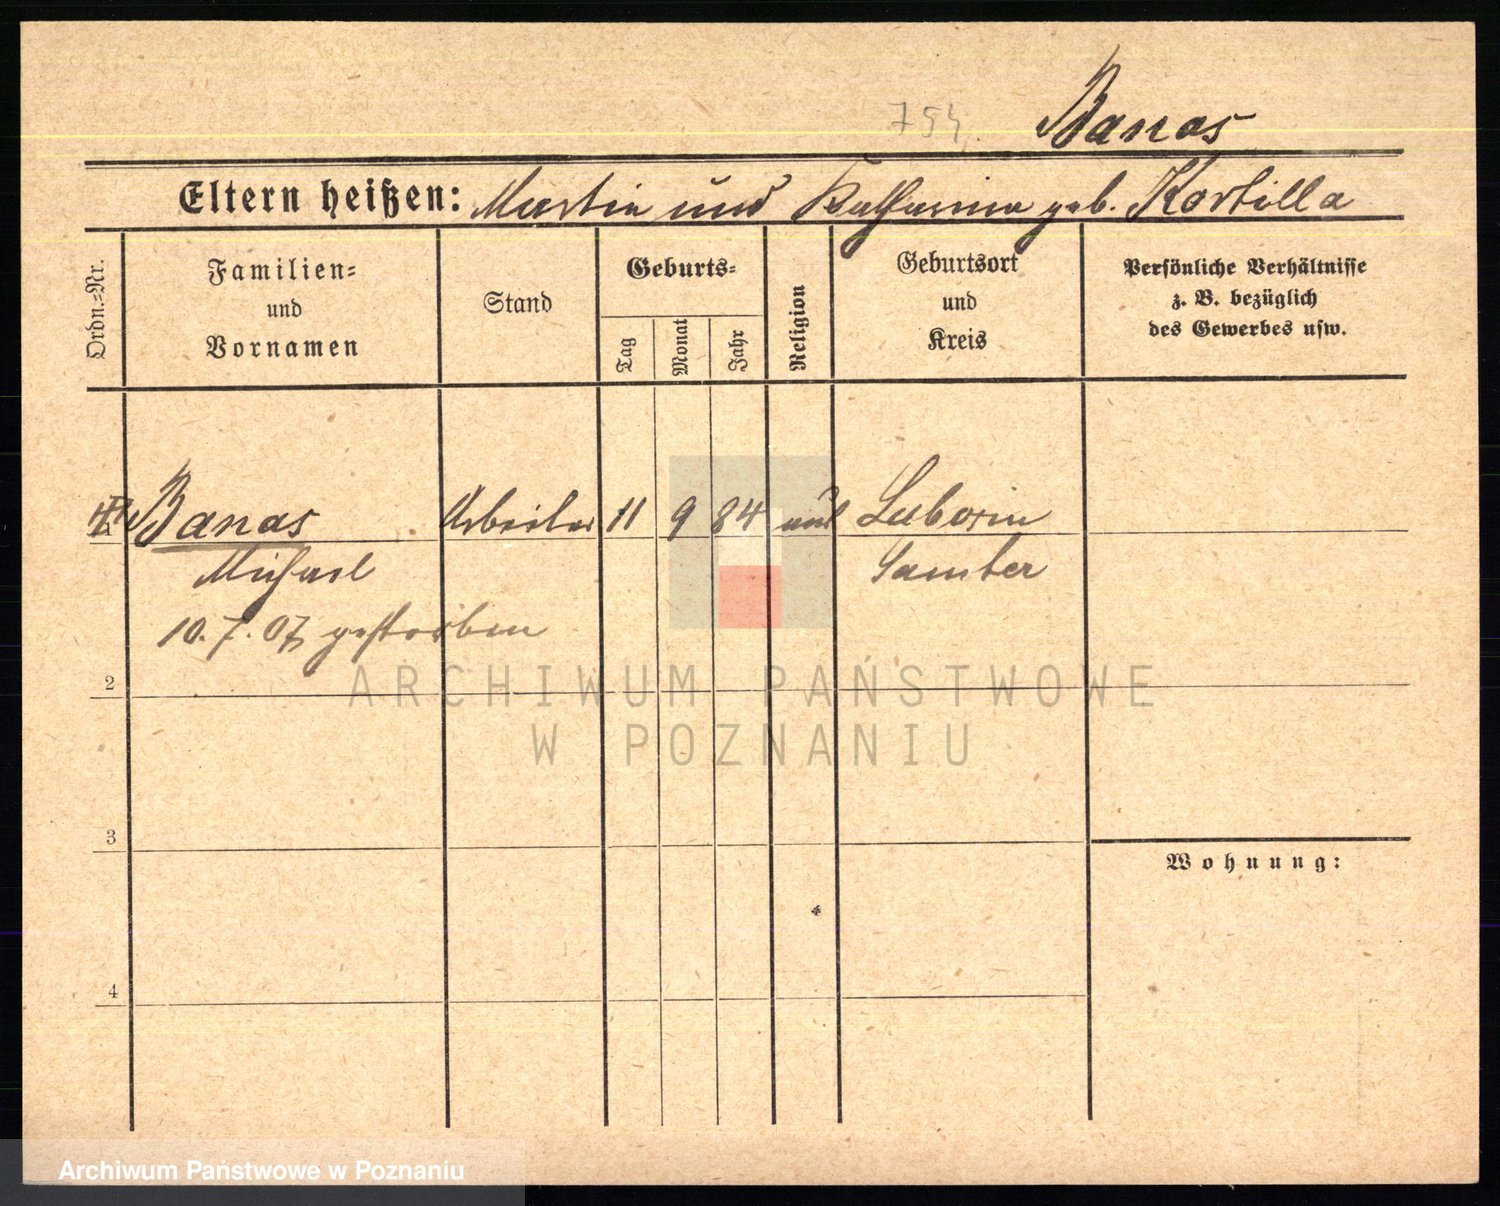 754.
Banas
Eltern heißen: Martin und Katharina geb. Kortilla
Ordn.-Nr.
Familien-
und
Vornamen
Stand
Geburts-
Tag
Monat
Jahr
Religion
Geburtsort
und
Kreis
Persönliche Verhältnisse
z. B. bezüglich
des Gewerbes usw.
Banas Arbeiter 11 9 84 Luborin
Michael Samber
10.7.07 gestorben
2
3
Wohnung:
4
ARCHIWUM PAŃSTWOWE
W POZNANIU
Archiwum Państwowe w Poznaniu